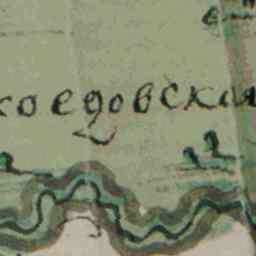 коедовская